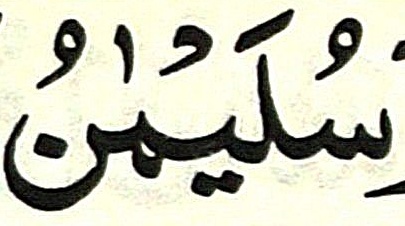 سُلَيْمٰنُ